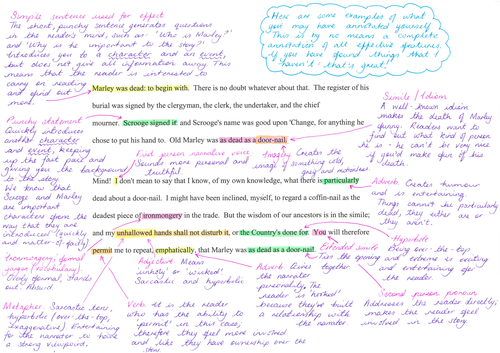 Simple sentence used for effect
The short, punchy sentence generates questions
in the reader's mind, such as - 'Who is Marley?'
and 'Why is he important to the story?' It
introduces you to a character and an event,
but does not give all information away. This
means that the reader is interested to
carry on reading
and find out
more.
Here are some examples of what
you may have annotated yourself.
This is by no means a complete
annotation of all effective features.
If you have found things that I
haven't - that's great!
Marley was dead: to begin with. There is no doubt whatever about that. The register of his
burial was signed by the clergyman, the clerk, the undertaker, and the chief
mourner. Scrooge signed it: and Scrooge's name was good upon 'Change, for anything he
chose to put his hand to. Old Marley was as dead as a door-nail.
Punchy statement
Quickly introduces
another character
and event, keeping
up the fast pace and
giving you the background
to the story.
We know that
Scrooge and Marley
are important
characters from the
way that they are
introduced (quickly
and matter-of-factly)
Simile / Idiom
A well-known idiom
makes the death of Marley
grumpy. Readers want to
find out what kind of person
he is - he can't be very nice
if you'd make fun of his
death.
First person narrative voice
Sounds more personal and
truthful
Imagery Creates the
image of something cold,
grey and motionless
Mind! I don't mean to say that I know, of my own knowledge, what there is particularly
dead about a door-nail. I might have been inclined, myself, to regard a coffin-nail as the
deadest piece of ironmongery in the trade. But the wisdom of our ancestors is in the simile;
and my unhallowed hands shall not disturb it, or the Country's done for. You will therefore
permit me to repeat, emphatically, that Marley was as dead as a door-nail.
Adverb Creates humour
and is entertaining
Things cannot be particularly
dead, they either are or
they aren't.
Ironmongery, formal
jargon (vocabulary)
Overly formal, stands
out. Absurd.
Metaphor Sarcastic tone,
hyperbolic (over-the-top,
exaggerative) Entertaining
for the narrator to have
a strong viewpoint.
Adjective Means
'unholy' or 'wicked'
Sarcastic and hyperbolic.
Verb It is the reader
who has the ability to
'permit' in this case,
therefore they feel more involved
and like they have ownership over the
story
Adverb Gives
the narrator
personality, The
reader is hooked
because they've built
a relationship with
the narrator
Extended simile
Ties the opening
Hyperbole
Being over-the-top
and extreme is exciting
and entertaining for
the reader.
Second person pronoun
Addresses the reader directly;
makes the reader feel
involved in the story.